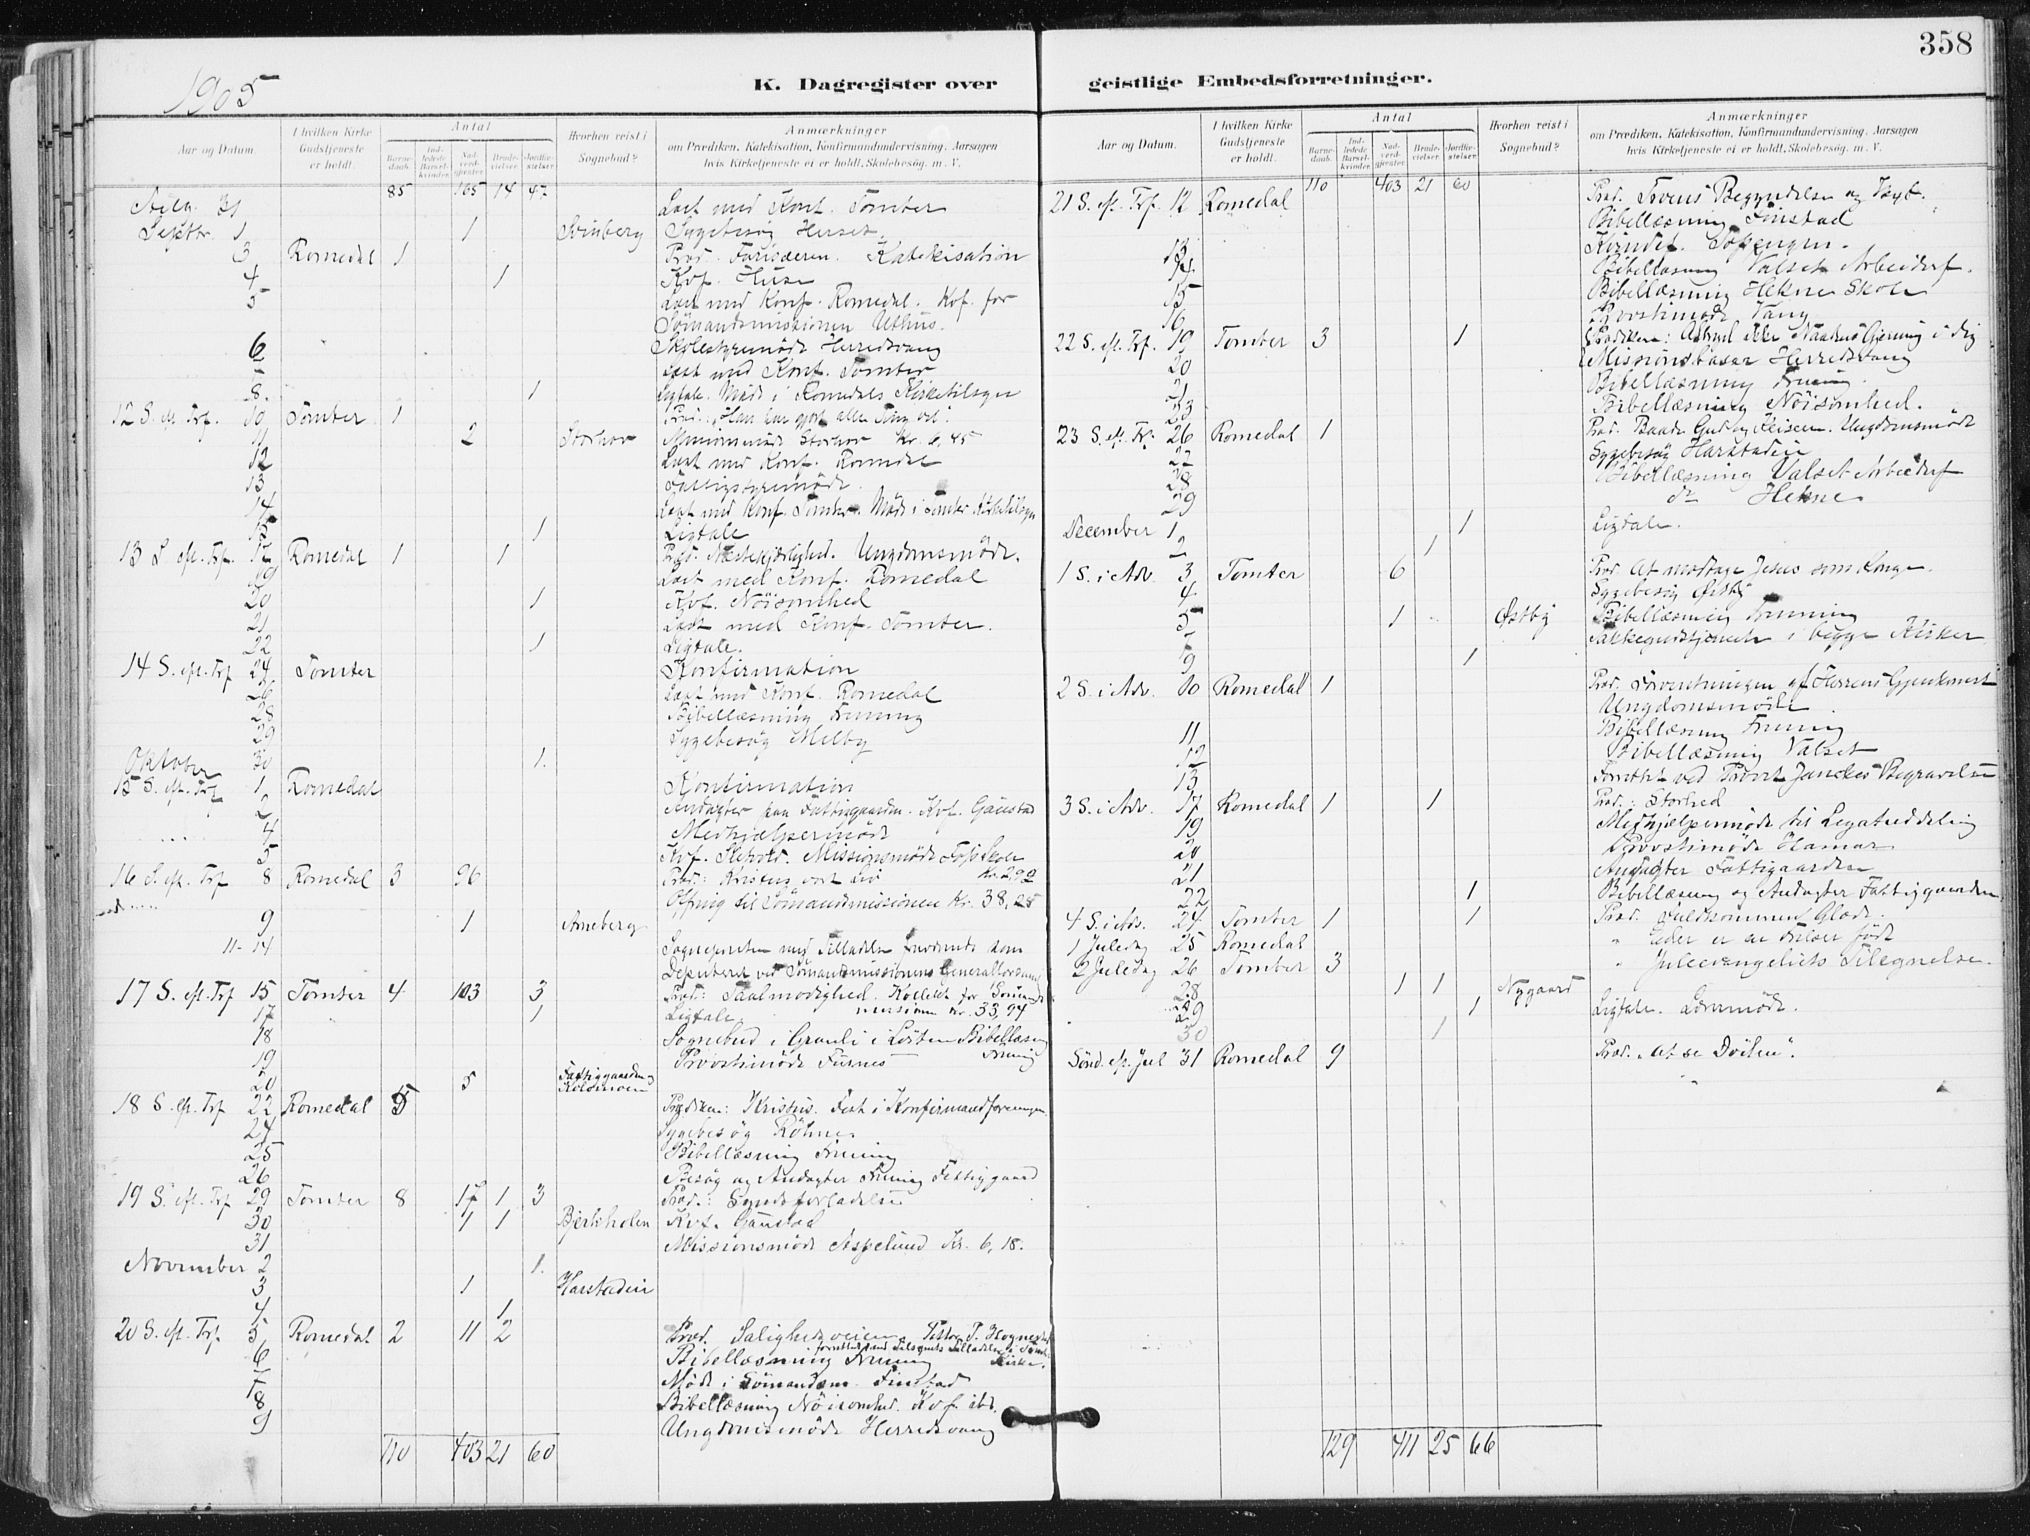 358
1905
K. Dagregister over geistlige Embedsforretninger.
Aar og Datum. I hvilken Kirke Gudstjeneste er holdt. Antal Barnedaab. Indledede Barselkvinder. Nadverdgjæster Brudevielser Jordfæstelser Hvorhen reist i Sognebud? Anmærkninger om Prædiken, Katekisation, Konfirmandundervisning, Aarsagen hvis Kirketjeneste ei er holdt, Skolebesøg. m. V.
85 165 14 47
31 Læst med Konf. Tomter
Septbr. 1 1 Svinberg Sygebesøg Herset
3 Romedal 1 Præd. Farisæeren. Katekisation
4 1 Kvf. Huse
5 Læst med Konf. Romedal. Kvf. for
Sømandsmissionen Uthus.
6 Skolestyremøde Herredsvang
7 Læst med Konf. Tomter
8. 1 Ligtale. Møde i Romedals Kirketilsyn
12 S. eft. Trf. 10 Tomter 1 Præd.: Han har gjort alle Ting vel.
11 2 Storhov Missionsmøde Storhov Kr. 6,45
12 Læst med Konf. Romedal
13 Fattigstyremøde.
14 Læst med Konf. Tomter. Møde i Tomter Kirketilsyn
15 1 Ligtale
13 S. eft. Trf. 17 Romedal 1 1 Præd. Næstekjærlighed. Ungdomsmøde.
19 Læst med Konf. Romedal
20 1 Kvf. Nöisomhed
21 Læst med Konf. Tomter.
22 1 Ligtale.
14 S. eft. Trf 24 Tomter Konfirmation
26 Læst med Konf. Romedal
28 Bibellæsning Frening
29 Sygebesøg Melby
30 1.
Oktober
15 S. eft. Trf 1 Romedal Konfirmation
2 Andagter paa Fattiggaarden. Kvf. Gaustad
4 Medhjælpermøde
5 Kvf. Missionsmøde Skole
16 S. eft. Trf 8 Romedal 3 96 Præd.: Kristus vort Liv Kr. 2,90
Offring til Sömandsmissionen Kr. 38,25
9 1 Arneberg
11-14 Sognepresten med Tilladelse fraværende som
Deputeret ved Sömandsmissionens Generalforsaml.
17 S. eft. Trf 15 Tomter 4 103 3 Præd.: Taalmodighed. Kollekt for Sömands
17 1 Ligtale. missionen Kr. 33,94
18 Sognebud i Granli i Løiten Bibellæsn
19 Provstimöde Furnes Frening
20 5 Fattiggaarden Kolomoen
18 S. eft. Trf 22 Romedal 5 Prædiken: Kristus. Fest i Konfirmandforeningen
24 Sygebesøg Röhne
25 Bibellæsning Frening
26 Besøg og Andagter Frening Fattiggaard
19 S. eft. Trf 29 Tomter 8 17 1 3 Præd.: Syndsforladelse
30 1 1 Bjerkholen Kvf. Gaustad
31 Missionsmöde Aspelund Kr. 6,18.
November 2 1.
3 1 Harstadeie
4 1
20 S. eft. Trf. 5 Romedal 2 11 2 Præd. Salighedsveien.
6 Bibellæsning Frening Kirke.
7 Möde i Finstad
8 Bibellæsning Nöisomhed. Kvf. ibd.
9 Ungdomsmöde Herredsvang
110 403 21 60
Aar og Datum. I hvilken Kirke Gudstjeneste er holdt. Antal Barnedaab. Indledede Barselkvinder. Nadverdgjæster Brudevielser Jordfæstelser Hvorhen reist i Sognebud? Anmærkninger om Prædiken, Katekisation, Konfirmandundervisning, Aarsagen hvis Kirketjeneste ei er holdt, Skolebesøg. m. V.
110 403 21 60
21 S. eft. Trf. 12 Romedal Præd. Troens Begyndelse og Vext.
Bibellæsning Finstad
13
14 Bibellæsning Valset Arbeiderf.
15 Bibellæsning Hekne Skole
16 Provstimøde Vang
22 S. eft. Trf. 19 Tomter 3 1 Prædiken: ikke Naadens Gjerning i dig
20 Missionsbasar Herredsvang
21 Bibellæsning Frening.
23 Bibellæsning Nöisomhed.
23 S. eft. Tr. 26 Romedal 1 Præd. Baade Gud og Keiseren. Ungdomsmöde
27 Sygebesøg Harstadeie
28 Bibellæsning Valset Arbeiderf
29 do Hekne
December 1 1 Ligtale.
2 1
1 S. i Adv. 3 Tomter 6 Præd. At modtage Jesus som Konge.
4 Sygebesøg Østby
5 1 Østby Bibellæsning Frening
7 Takkegudstjeneste i begge Kirker
9 1
2 S. i Adv. 10 Romedal 1 Præd. Forventningen af Herrens Gjenkomst
Ungdomsmöde
11 Bibellæsning Frening
12 Bibellæsning Valset
13 Forrettet ved Provst Begravelse
3 S. i Adv. 17 Romedal 1 1 Præd.: Storhed
19 Medhjælpermøde til Legatuddeling
20 Provstimöde Hamar
21 Andagter Fattiggaarden
22 1 Bibellæsning og Andagter Fattiggaarden
4 S. i Adv. 24 Tomter 1 1 Præd. Fuldkommen Glæde.
1 Juledag 25 Romedal " Eder er en Frelser født
2 Juledag 26 Tomter 3 " Juleevangeliets Tilegnelse.
28 1 1 Nygaard
29 1 Ligtale.
30 1
Sönd. ef. Jul 31 Romedal 9 Præd. „At se Döden".
129 411 25 66